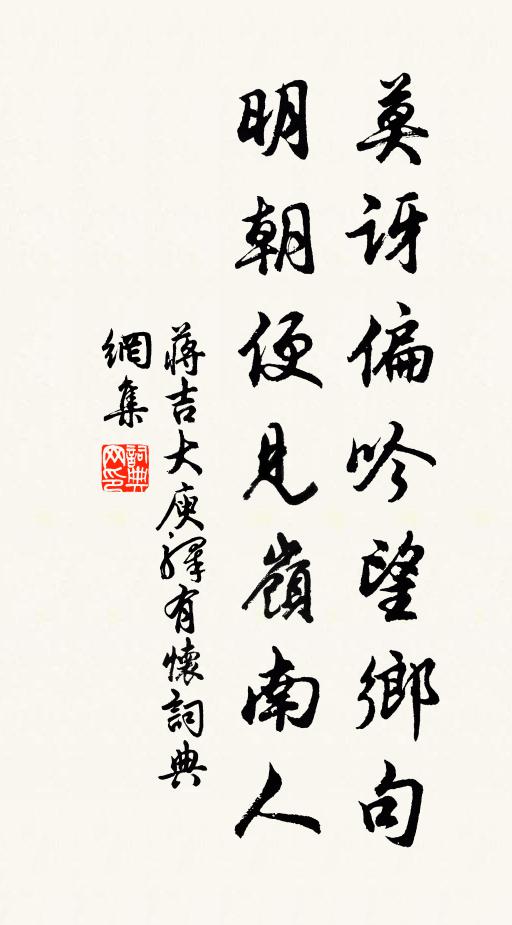 莫訝偏吟望鄉句
明朝便見嶺南人
蔣吉大庾驛有懷詞典
網集
詞典
网印